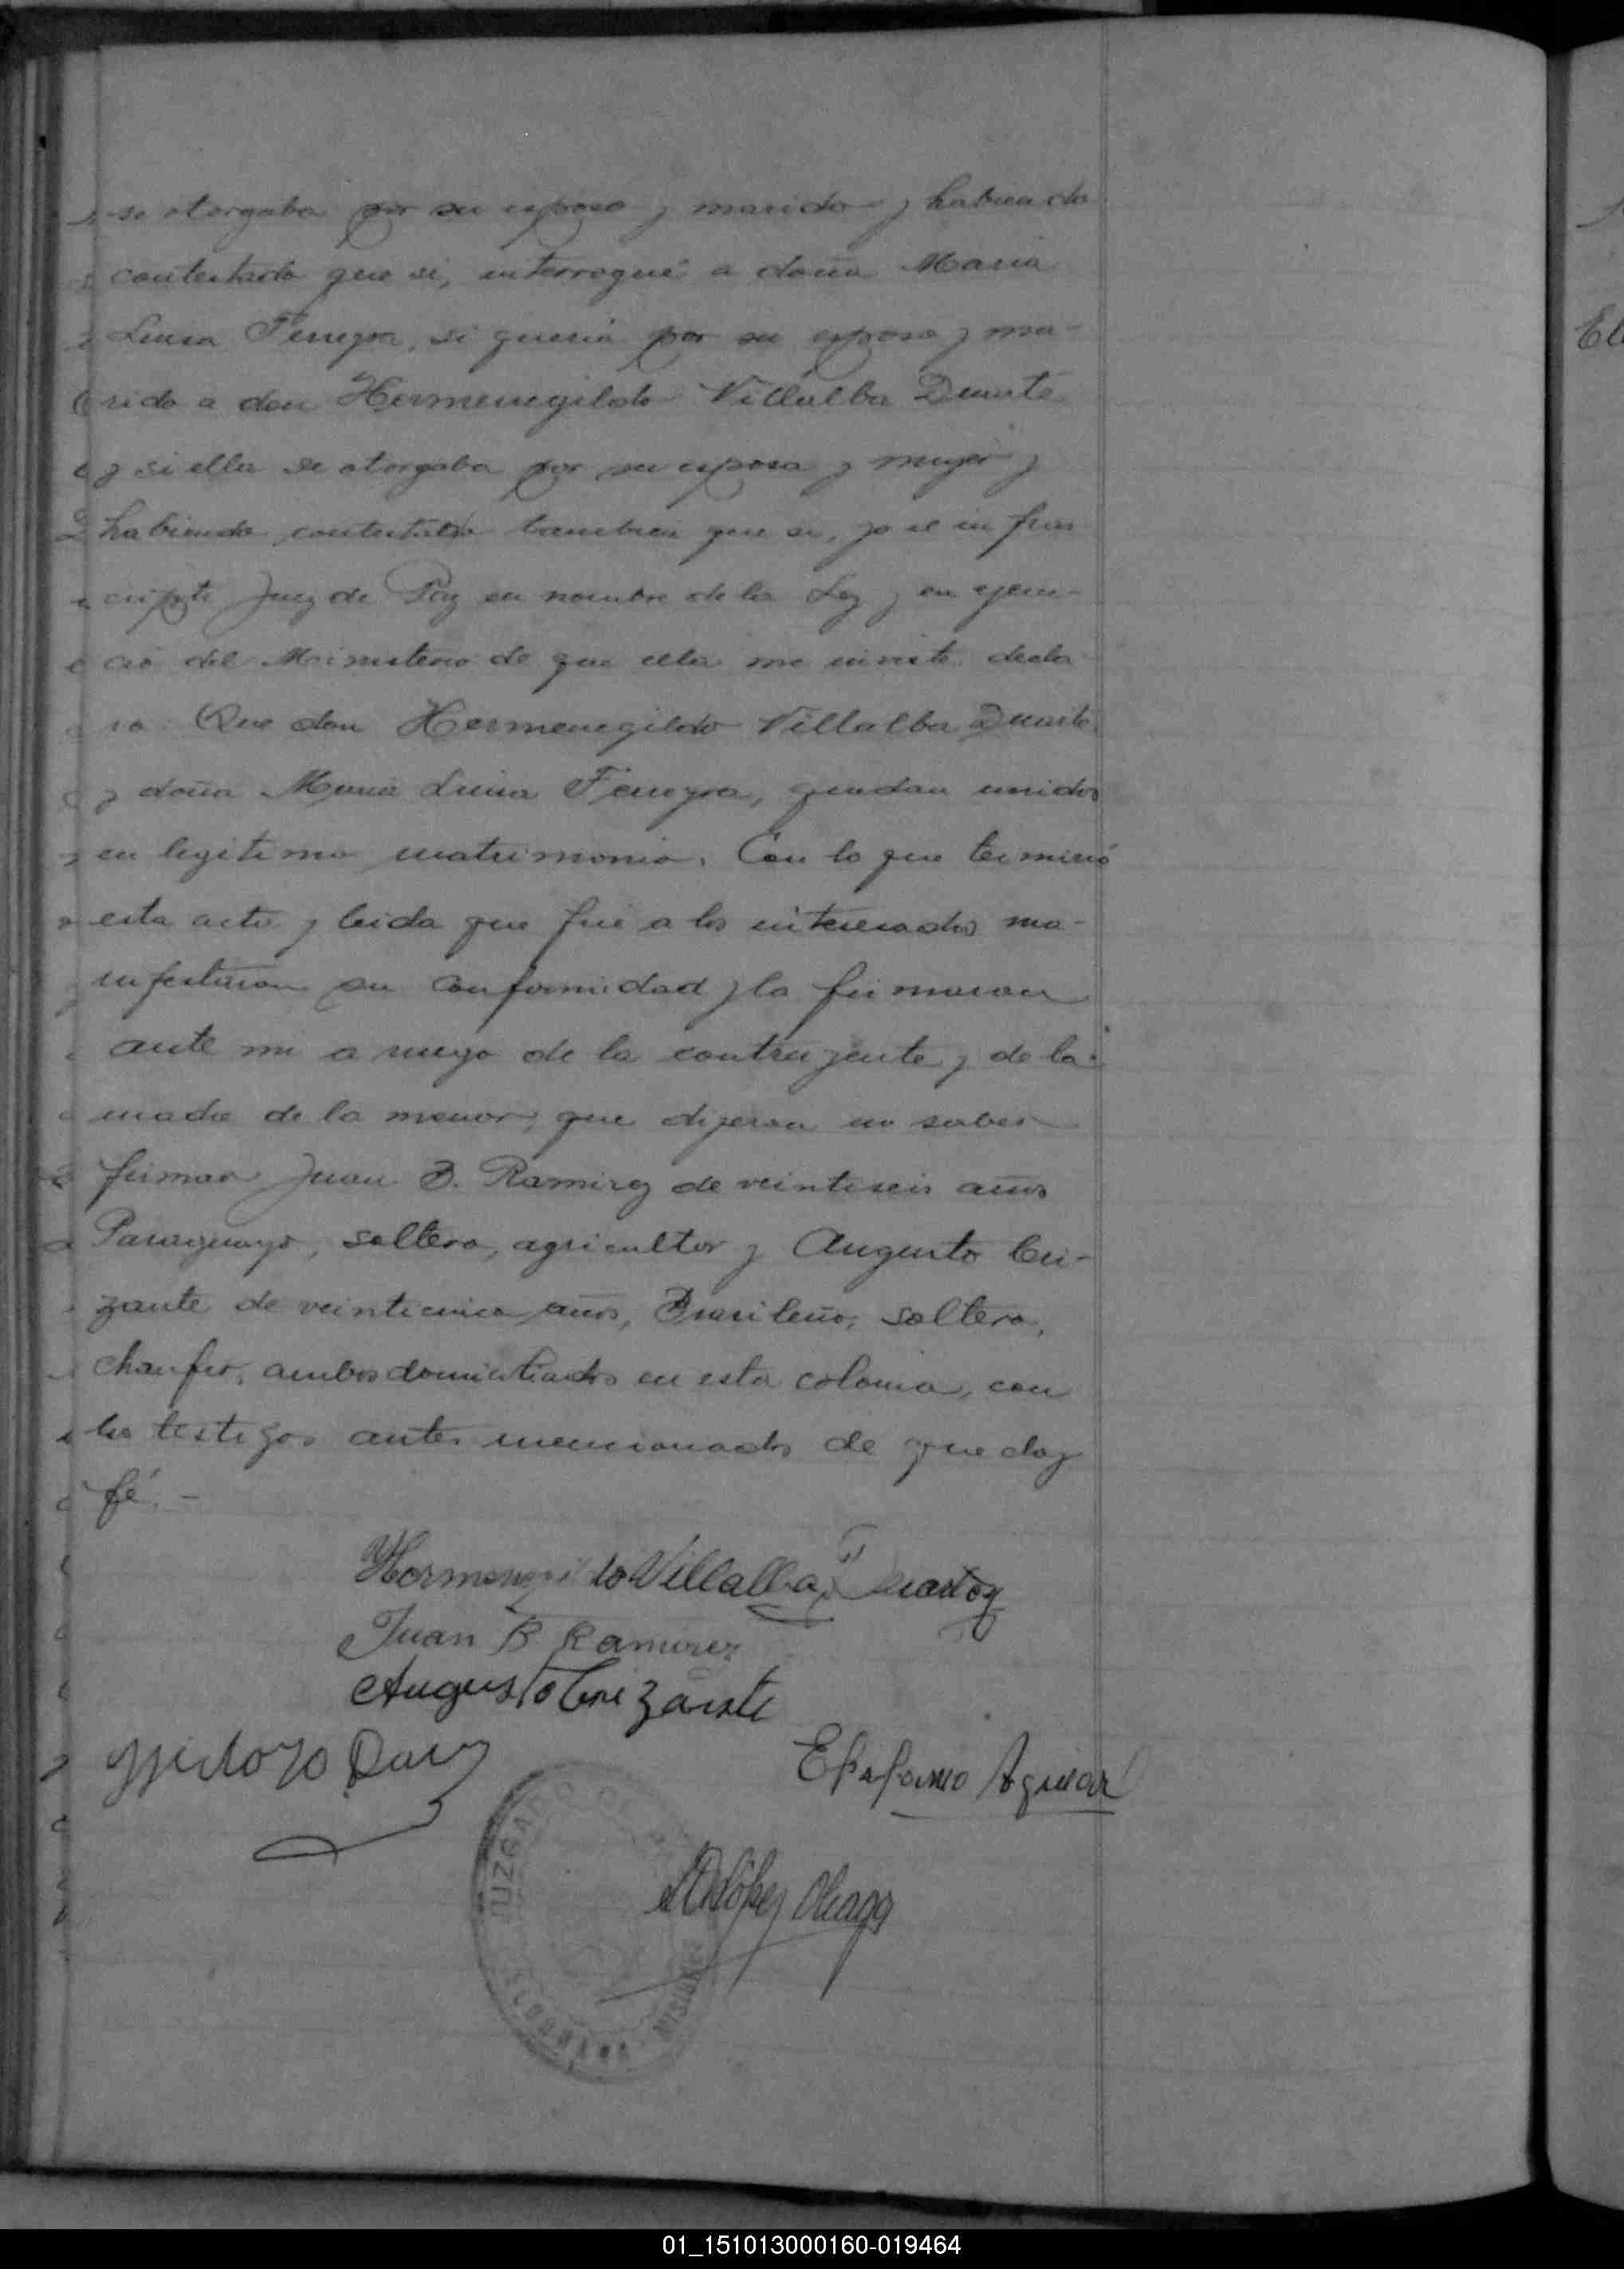 se otorgaba por su esposo y marido y habiendo
contestado que si, interrogué a doña Maria
Luisa Ferreyra, si queria por su esposo y ma-
rido a don Hermenegildo Villalba Duarte
y si ella se otorgaba por su esposa y mujer y
habiendo contestado tambien que si, yo el infras
cripto Juez de Paz en nombre de la Ley y en ejerci-
cio del Ministerio de que ella me inviste decla
ro: Que don Hermenegildo Villalba Duarte,
y doña Maria Luisa Ferreyra, quedan unidos
en legitimo matrimonio. Con lo que terminó
esta acta y leida que fué a los interesados ma-
nifestaron su conformidad y la firmaron
ante mi a ruego de la contrayente y de la
madre de la menor, que dijeron no saber
firmar Juan B. Ramirez de veintiseis años
Paraguayo, soltero, agricultor y Augusto Cri-
zante de veinticinco años, Brasileño, soltero,
chaufer, ambos domiciliados en esta colonia, con
los testigos antes mencionados de que doy
fé. -
Hermenegildo Villalba Duarte
Juan B Ramirez
Augusto Crizante
Epifanio Aguiar
López
JUZGADO DE
MISIONES
01_151013000160-019464